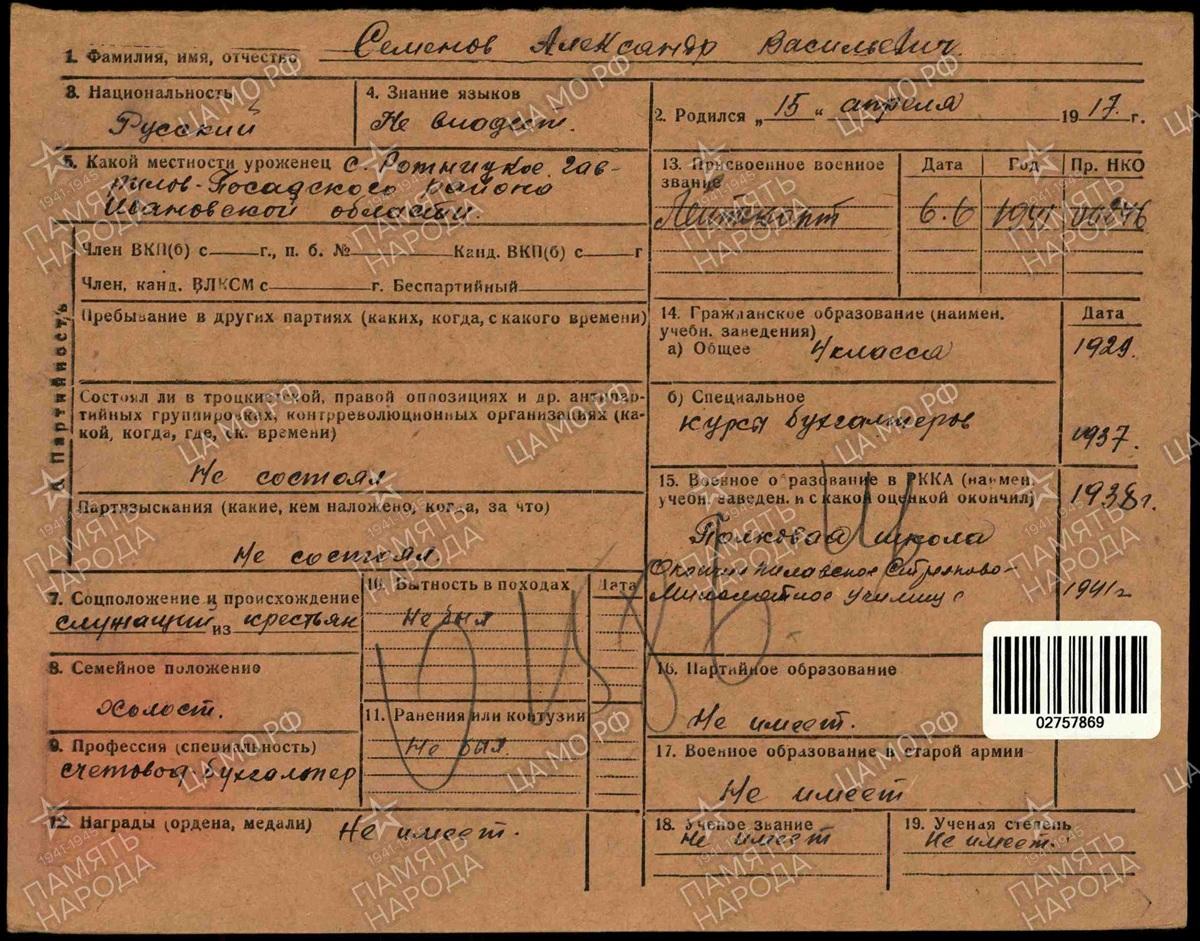 1. Фамилия, имя, отчество Семенов Александр Васильевич
3. Национальность Русский
4. Знание языков Не владеет.
2. Родился „15“ апреля 1917 г.
5. Какой местности уроженец с. Ротницкое Гав-
рилов-Посадского района
Ивановской области.
13. Присвоенное военное звание
Дата
Год
Пр. НКО
Лейтенант 6.6 1941
6. Партийность
Член ВКП(б) с г., п. б. № Канд. ВКП(б) с г
Член, канд. ВЛКСМ с г. Беспартийный
Пребывание в других партиях (каких, когда, с какого времени)
Состоял ли в троцкистской, правой оппозициях и др. антипар-
тийных группировках, контрреволюционных организациях (ка-
кой, когда, где, ск. времени)
Не состоял
Партвзыскания (какие, кем наложено, когда, за что)
Не состоял.
14. Гражданское образование (наимен.
учебн. заведения)
Дата
а) Общее 4 класса 1929.
б) Специальное
курсы бухгалтеров 1937.
15. Военное образование в РККА (наимен.
учебн. заведен. и с какой оценкой окончил)
1938г.
Полковая школа
Стрелково-
Минометное училище 1941г
7. Соцположение и происхождение
служащий из крестьян
10. Бытность в походах
Дата
Не был
8. Семейное положение
Холост.
11. Ранения или контузии
Не был.
9. Профессия (специальность)
счетовод-бухгалтер
16. Партийное образование
Не имеет.
02757869
17. Военное образование в старой армии
Не имеет
12. Награды (ордена, медали) Не имеет.
18. Ученое звание
Не имеет
19. Ученая степень
Не имеет.
ЦА МО РФ
1941-1945
ПАМЯТЬ
НАРОДА